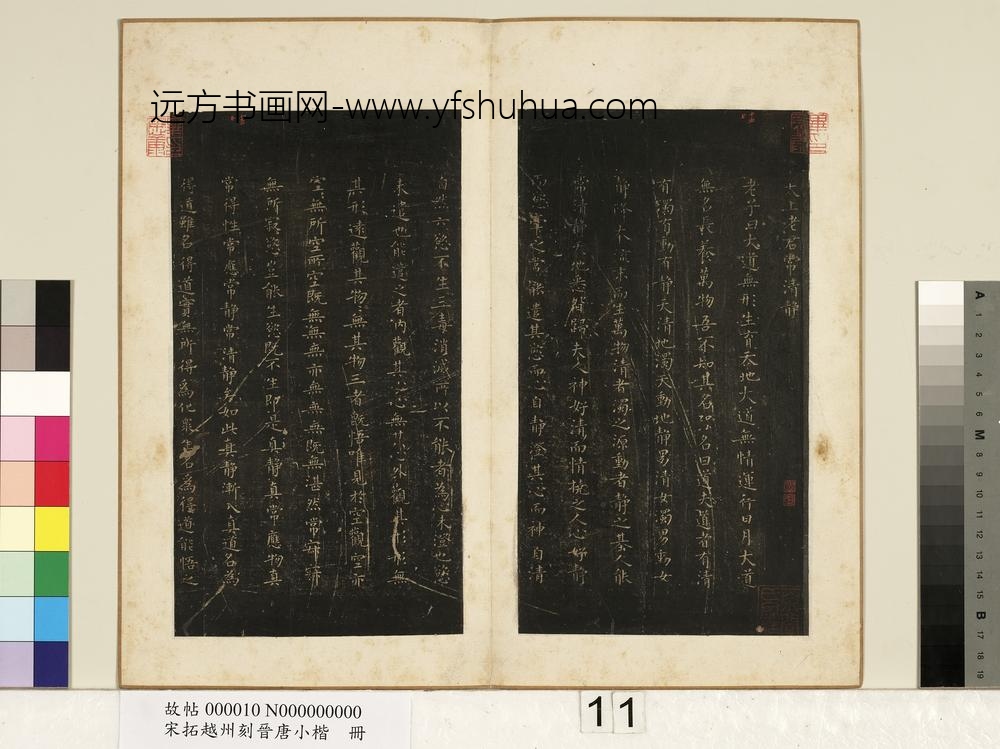 远方书画网-www.yfshuhua.com
太上老君常清靜
老子曰大道無形生育天地大道無情運行日月大道
無名長養萬物吾不知其名強名曰道夫道者有清
有濁有動有靜天清地濁天動地靜男清女濁男動女
靜降本流末而生萬物清者濁之源動者靜之基人能
常清靜天地悉皆歸夫人神好清而情撓之人心好靜
而慾牽之常能遣其慾而心自靜澄其心而神自清
自然六慾不生三毒消滅所以不能者為心未澄也慾
未遣也能遣之者內觀其心心無其心外觀其形形無
其形遠觀其物物無其物三者既悟唯見於空觀空亦
空空無所空所空既無無無亦無無無既無湛然常寂寂
無所寂慾豈能生慾既不生即是真靜真常應物真
常得性常應常靜常清靜矣如此真靜漸入真道名為
得道雖名得道實無所得為化眾生名為得道能悟之
故帖 000010 N000000000
宋拓越州刻晉唐小楷 冊
11
A 1 2 3 4 5 6 M 8 9 10 11 12 13 14 15 B 17 18 19